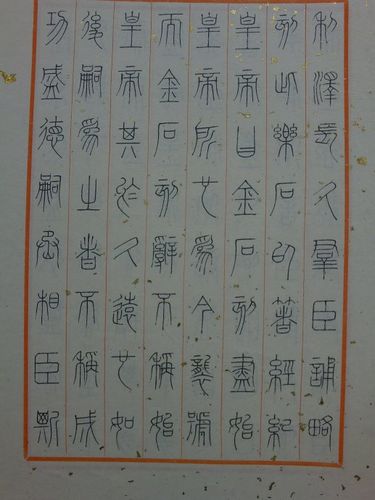 利澤長久群臣誦略
刻此樂石以著經紀
皇帝曰金石刻盡始
皇帝所也為今襲號
而金石刻辭不稱始
皇帝其於久遠也如
後嗣為之者不稱成
功盛德嗣丞相臣斯